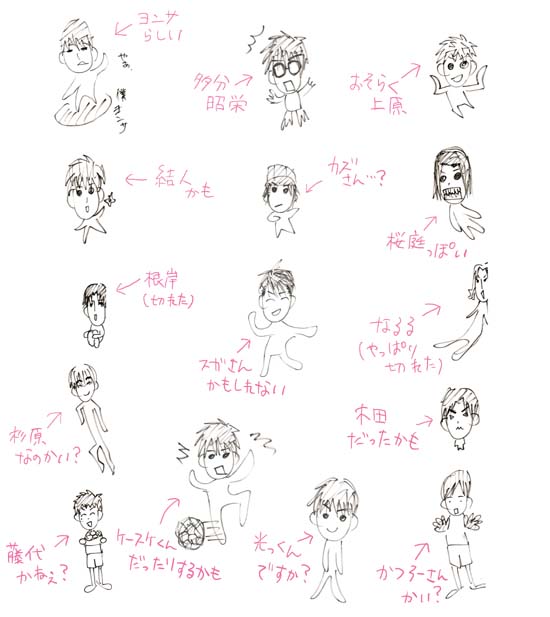 ヨンサ
らしい
やぁ、
僕ヨンサ
多分
昭栄
おそらく
上原
結人
かも
カズ
さん…?
桜庭
っぽい
根岸
(切れた)
スガさん
かもしれない
なるる
(やっぱり
切れた)
杉原
なのかい?
木田
だったかも
藤代
かねぇ?
ケースケくん
だったりするかも
光っくん
ですか?
かつろーさん
かい?